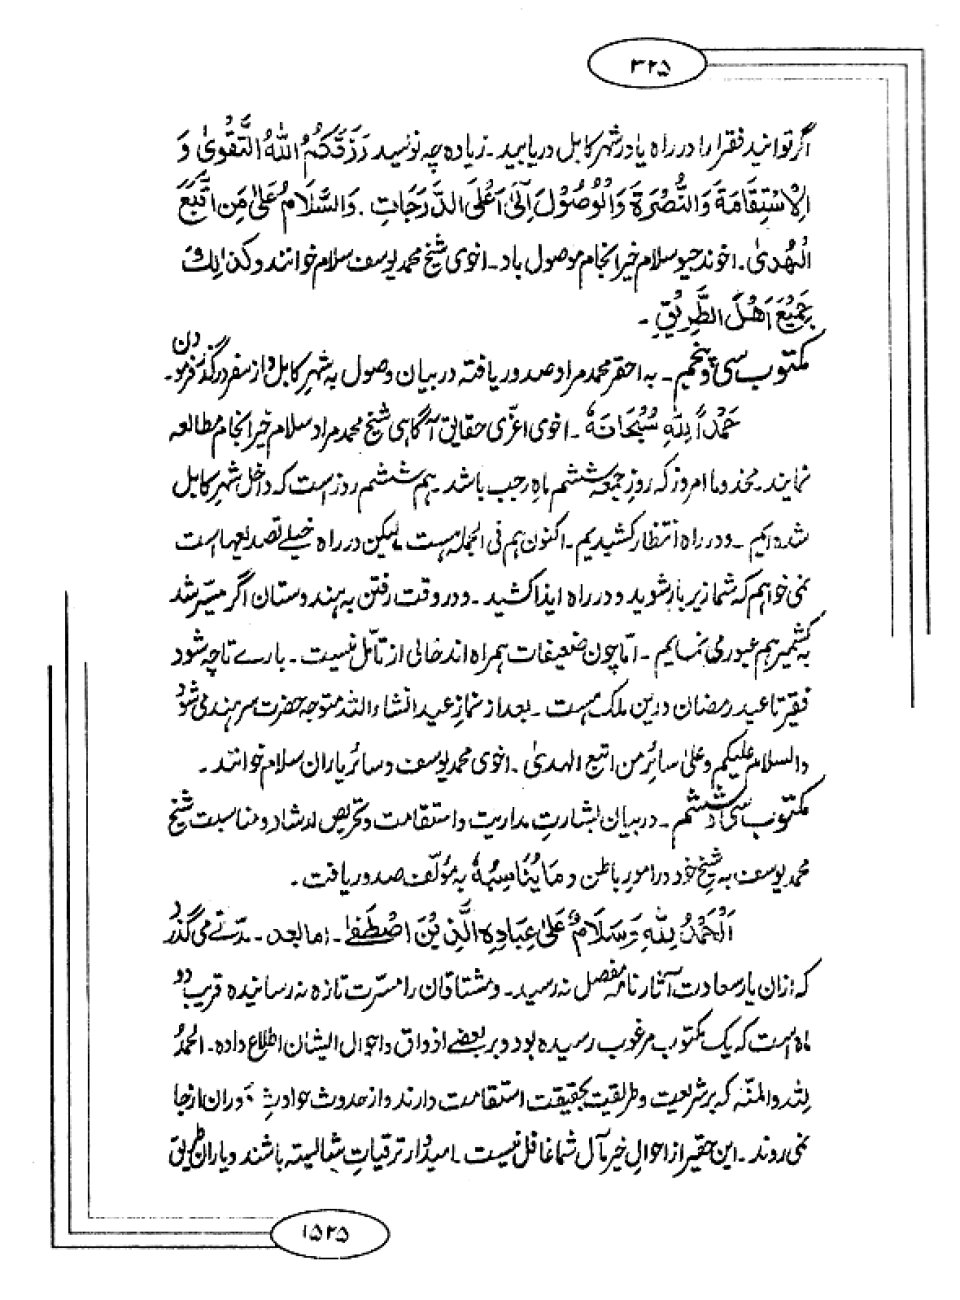 ۳۲۵
اگر توانید فقرا را در راه یا در شهر کابل دریابید۔ زیاده چه نویسد رَزَقَکُمُ اللهُ التَّقْویٰ وَ
الْاِسْتِقَامَةَ وَالنُّصْرَةَ وَالْوُصُوْلَ اِلیٰ اَعْلَی الدَّرَجَاتِ۔ وَالسَّلَامُ عَلیٰ مَنِ اتَّبَعَ
الْهُدیٰ۔ اخوند جیو سلام خیر انجام موصول باد۔ اخوی شیخ محمد یوسف سلام خوانند وکذالک
جَمِیْعَ اَهْلَ الطَّرِیْقِ۔
مکتوب سی و پنجم۔ به احقر محمد مراد صدور یافته در بیان وصول به شهر کابل و از سفر در گذر فرمودن۔
حَمْدًا لِلّٰهِ سُبْحَانَهٗ۔ اخوی اعزّی حقایق آگاهی شیخ محمد مراد سلام خیر انجام مطالعه
نمایند۔ مخدوما امروز که روز جمعه ششم ماهِ رجب باشد۔ هم ششم روز است که داخل شهر کابل
شده ایم۔ و در راه انتظار کشیدیم۔ اکنون هم فی الجمله هست لیکن در راه خیلے تصدیعها است
نمی خواهم که شما زیر بار شوید و در راه ایذا کشید۔ و در وقت رفتن به هندوستان اگر میسّر شد
به کشمیر هم عبور می نمایم۔ امّا چون ضعیفات همراه اند خالی از تأمّل نیست۔ بارے تا چه شود
فقیر تا عید رمضان درین ملک هست۔ بعد از نماز عید انشاء الله متوجه حضرت سرهند می شود
والسلام علیکم وعلیٰ سائر من اتبع الهدیٰ۔ اخوی محمد یوسف و سائر یاران سلام خوانند۔
مکتوب سی و ششم۔ در بیان بشارتِ مداریت و استقامت و تحریص ارشاد و مناسبت شیخ
محمد یوسف به شیخ خود در امورِ باطن و مَا یُنَاسِبُهٗ به مؤلّف صدور یافت۔
اَلْحَمْدُ لِلّٰهِ وَسَلَامٌ عَلیٰ عِبَادِهِ الَّذِیْنَ اصْطَفیٰ۔ اما بعد۔ مدّتے می گذرد
که ازان یار سعادت آثار نامه مفصل نه رسید۔ و مشتاقان را مسرّت تازه نه رسانیده قریب دو
ماه است که یک مکتوب مرغوب رسیده بود و بر بعضے اذواق و احوال ایشان اطلاع داده۔ الحمدُ
لِلّٰه والمنّه که بر شریعت و طریقت بحقیقت استقامت دارند و از حدوث حوادثِ دوران از جا
نمی روند۔ این حقیر از احوالِ خیر مآل شما غافل نیست۔ امیدوار ترقیاتِ شائسته باشند و یاران طریق
۱۵۲۵